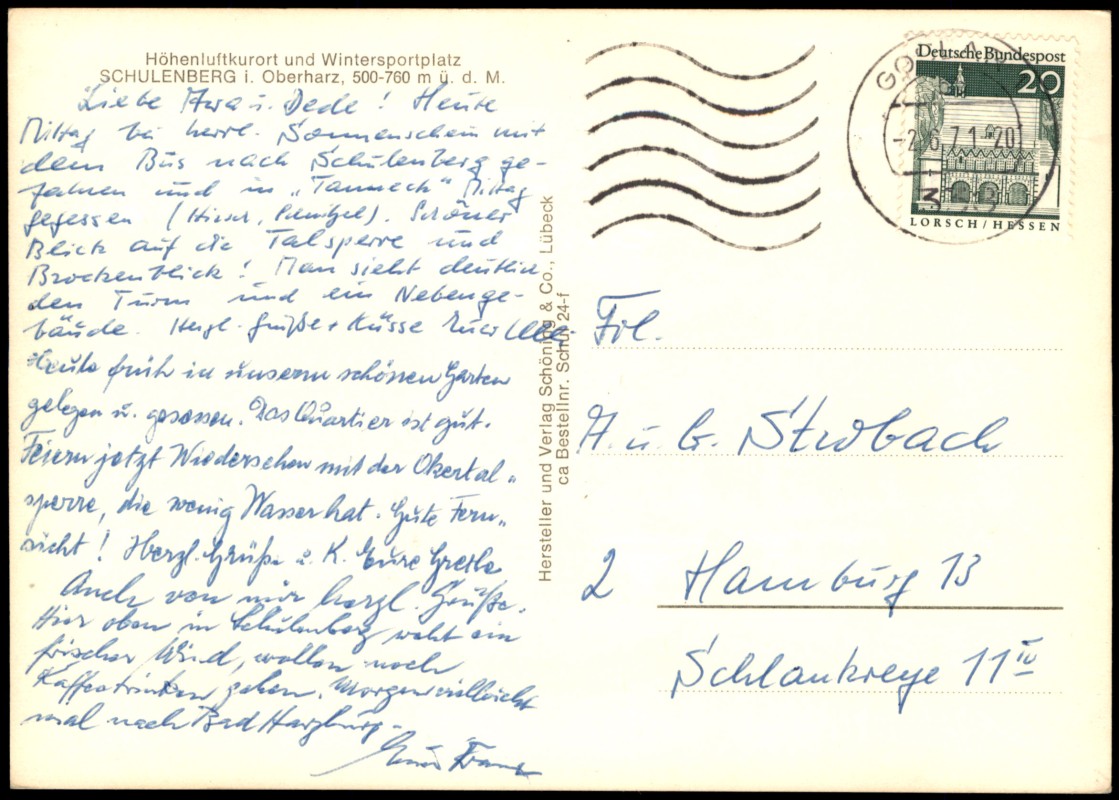 Höhenluftkurort und Wintersportplatz
SCHULENBERG i. Oberharz, 500-760 m ü. d. M.
Liebe u. Dede! Heute
Mittag bei herrl. Sonnenschein mit
dem Bus nach Schulenberg ge-
fahren und in „Tanneck" Mittag
gegessen (Hirsch, Schnitzel). Schöner
Blick auf die Talsperre und
Brockenblick! Man sieht deutlich
den Turm und ein Nebenge-
bäude. Herzl. Grüße + Küsse Eure
Heute früh in unserm schönen Garten
gelegen u. gesessen. Das Quartier ist gut.
Feiern jetzt Wiedersehen mit der Okertal-
sperre, die wenig Wasser hat. Gute Fern-
sicht! Herzl. Grüße u. K. Eure Grete
Auch von mir herzl. Grüße.
Hier oben in Schulenberg weht ein
frischer Wind, wollen noch
Kaffeetrinken gehen. Morgen vielleicht
mal nach Bad Harzburg.
Hersteller und Verlag Schöning & Co., Lübeck
ca Bestellnr. Schul 24-f
Deutsche Bundespost
20
LORSCH/HESSEN
GOSLAR
-2.6.71-20
Frl.
A. u. G. Strobach
2 Hamburg 13
Schlankreye 11 IV